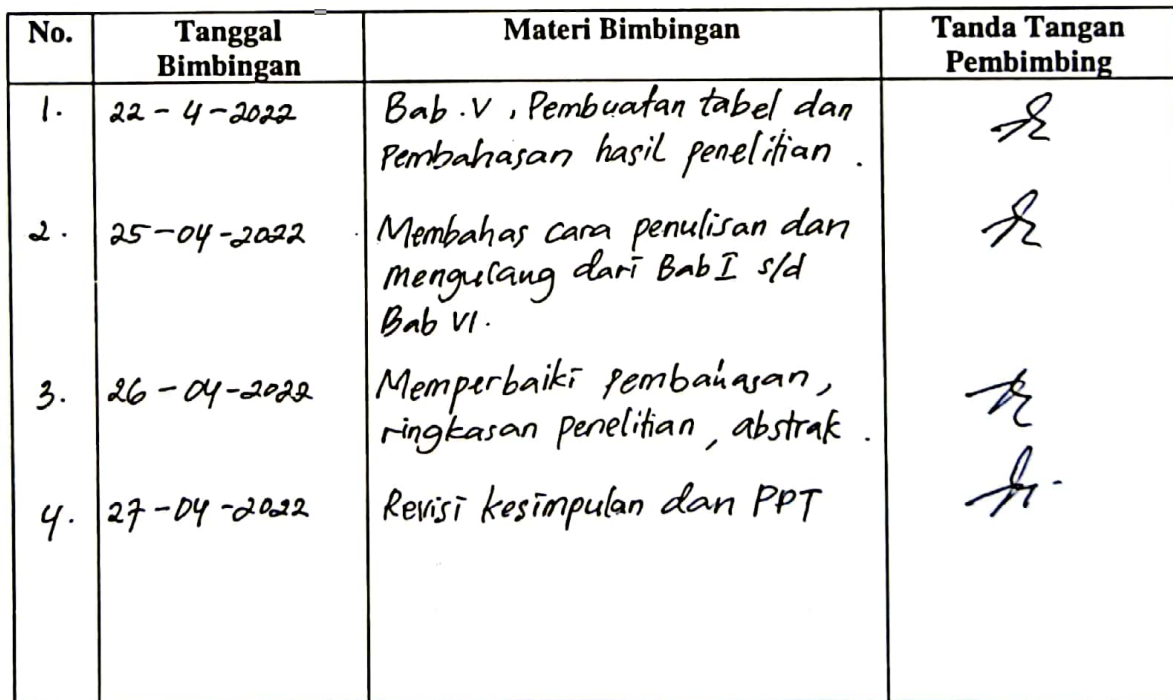 No. Tanggal Bimbingan Materi Bimbingan Tanda Tangan Pembimbing
1. 22-4-2022 Bab.V, Pembuatan tabel dan
Pembahasan hasil penelitian.
2. 25-04-2022 Membahas cara penulisan dan
mengulang dari Bab I s/d
Bab VI.
3. 26-04-2022 Memperbaiki pembahasan,
ringkasan penelitian, abstrak.
4. 27-04-2022 Revisi kesimpulan dan PPT